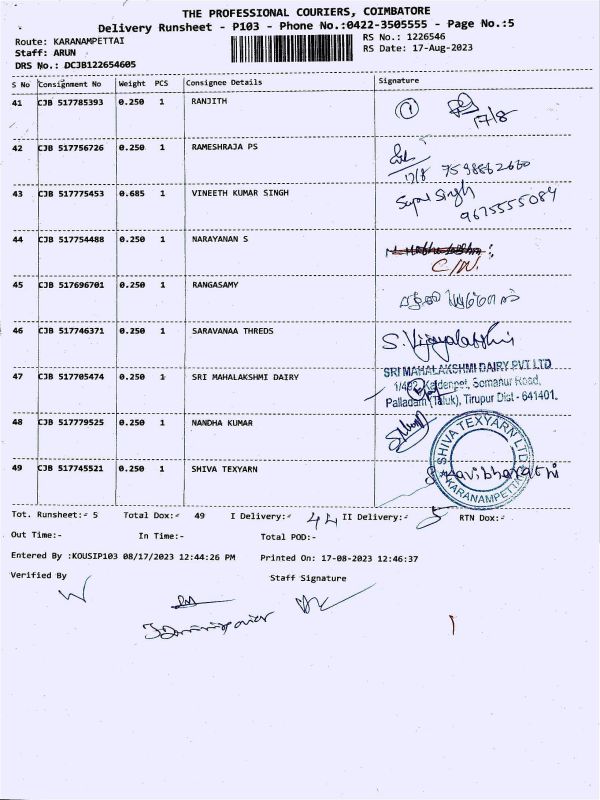 THE PROFESSIONAL COURIERS, COIMBATORE
Delivery Runsheet - P103 - Phone No.:0422-3505555 - Page No.:5
Route: KARANAMPETTAI
RS No.: 1226546
Staff: ARUN
RS Date: 17-Aug-2023
DRS No.: DCJB122654605
S No Consignment No Weight PCS Consignee Details Signature
41 CJB 517785393 0.250 1 RANJITH 1 17/8
42 CJB 517756726 0.250 1 RAMESHRAJA PS 17/8 7598862660
43 CJB 517775453 0.685 1 VINEETH KUMAR SINGH Singh 9675555084
44 CJB 517754488 0.250 1 NARAYANAN S
45 CJB 517696701 0.250 1 RANGASAMY
46 CJB 517746371 0.250 1 SARAVANAA THREDS S. Vijayalakshmi
47 CJB 517705474 0.250 1 SRI MAHALAKSHMI DAIRY
SRI MAHALAKSHMI DAIRY PVT LTD
Somanur Road,
Palladam (Taluk), Tirupur Dist - 641401.
48 CJB 517779525 0.250 1 NANDHA KUMAR
49 CJB 517745521 0.250 1 SHIVA TEXYARN
SHIVA TEXYARN LTD
KARANAMPETTAI
Tot. Runsheet:- 5 Total Dox:- 49 I Delivery:- 44 II Delivery:- 5 RTN Dox:-
Out Time:- In Time:- Total POD:-
Entered By :KOUSIP103 08/17/2023 12:44:26 PM Printed On: 17-08-2023 12:46:37
Verified By Staff Signature